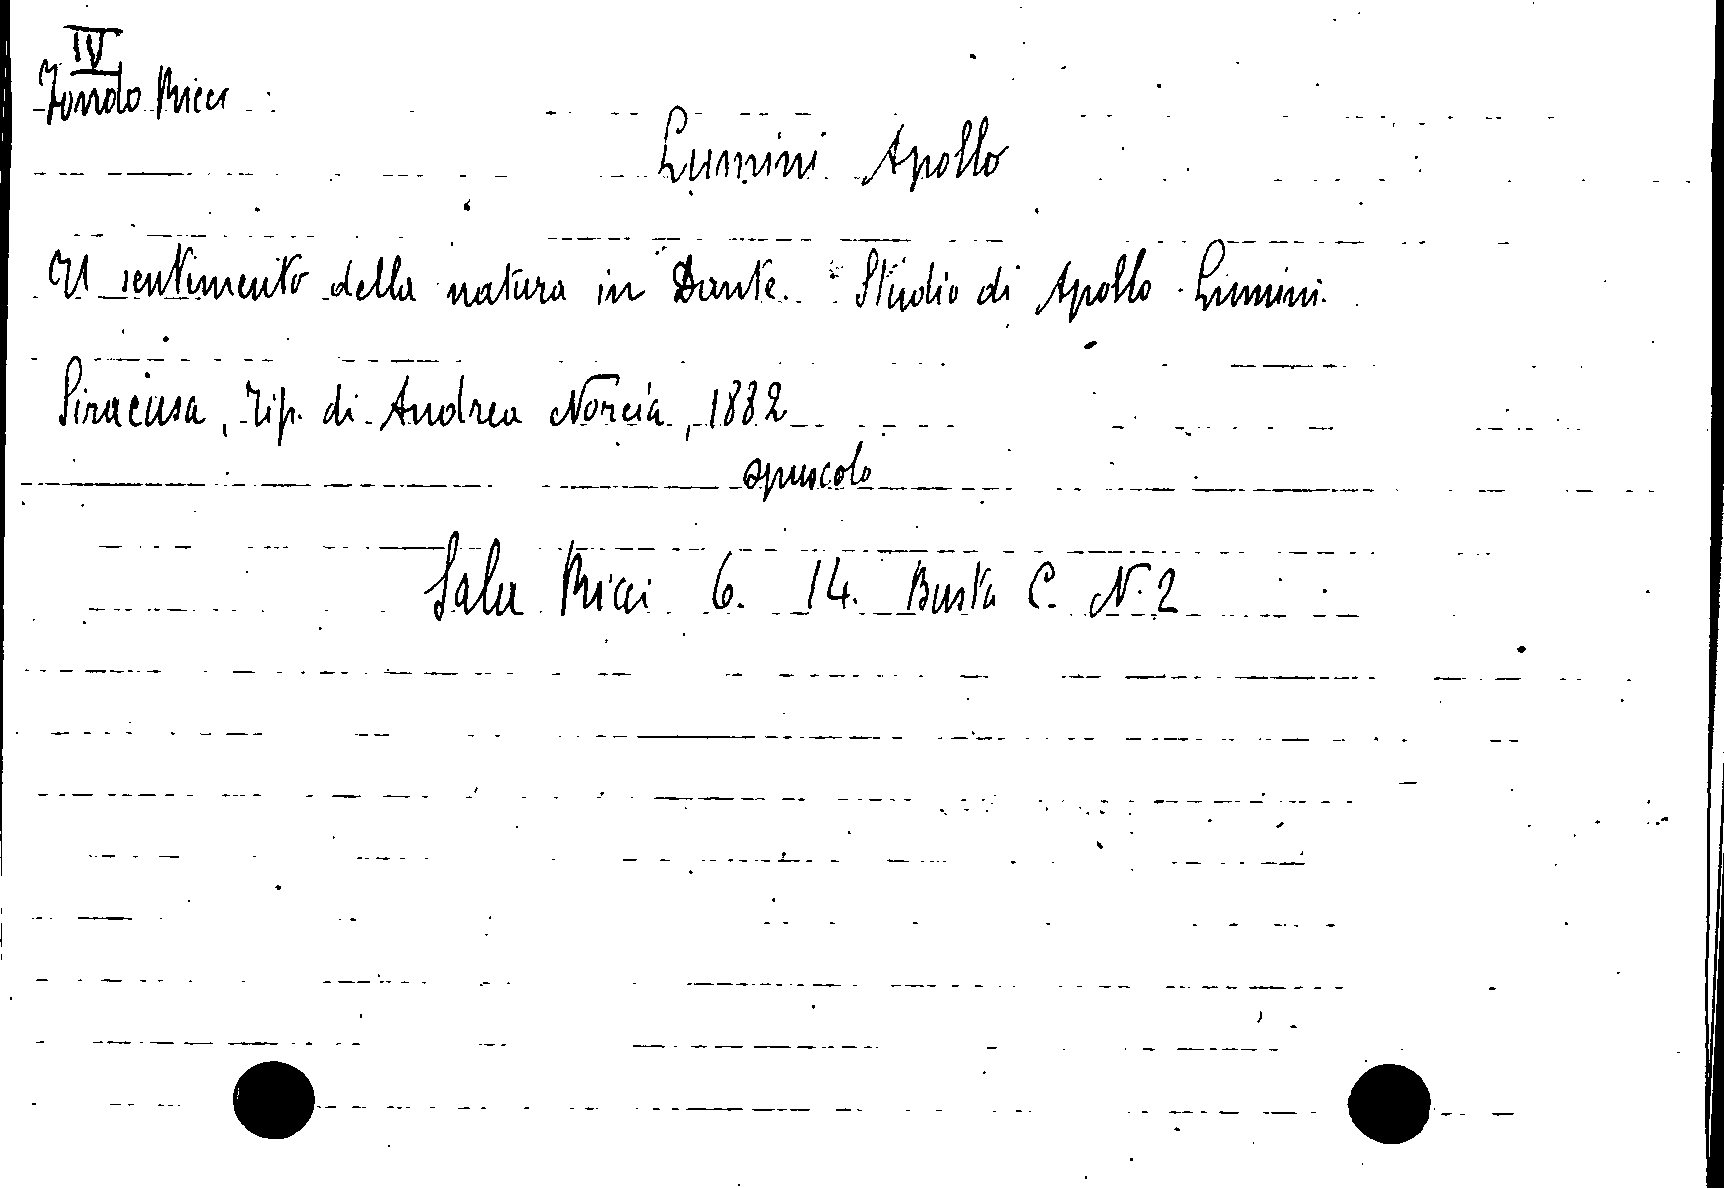 IV
Fondo Ricci
Lumini Apollo
Il sentimento della natura in Dante. Studio di Apollo Lumini.
Siracusa, Tip. di Andrea Norcia, 1882
opuscolo
Sala Ricci 6. 14. Busta C. N. 2